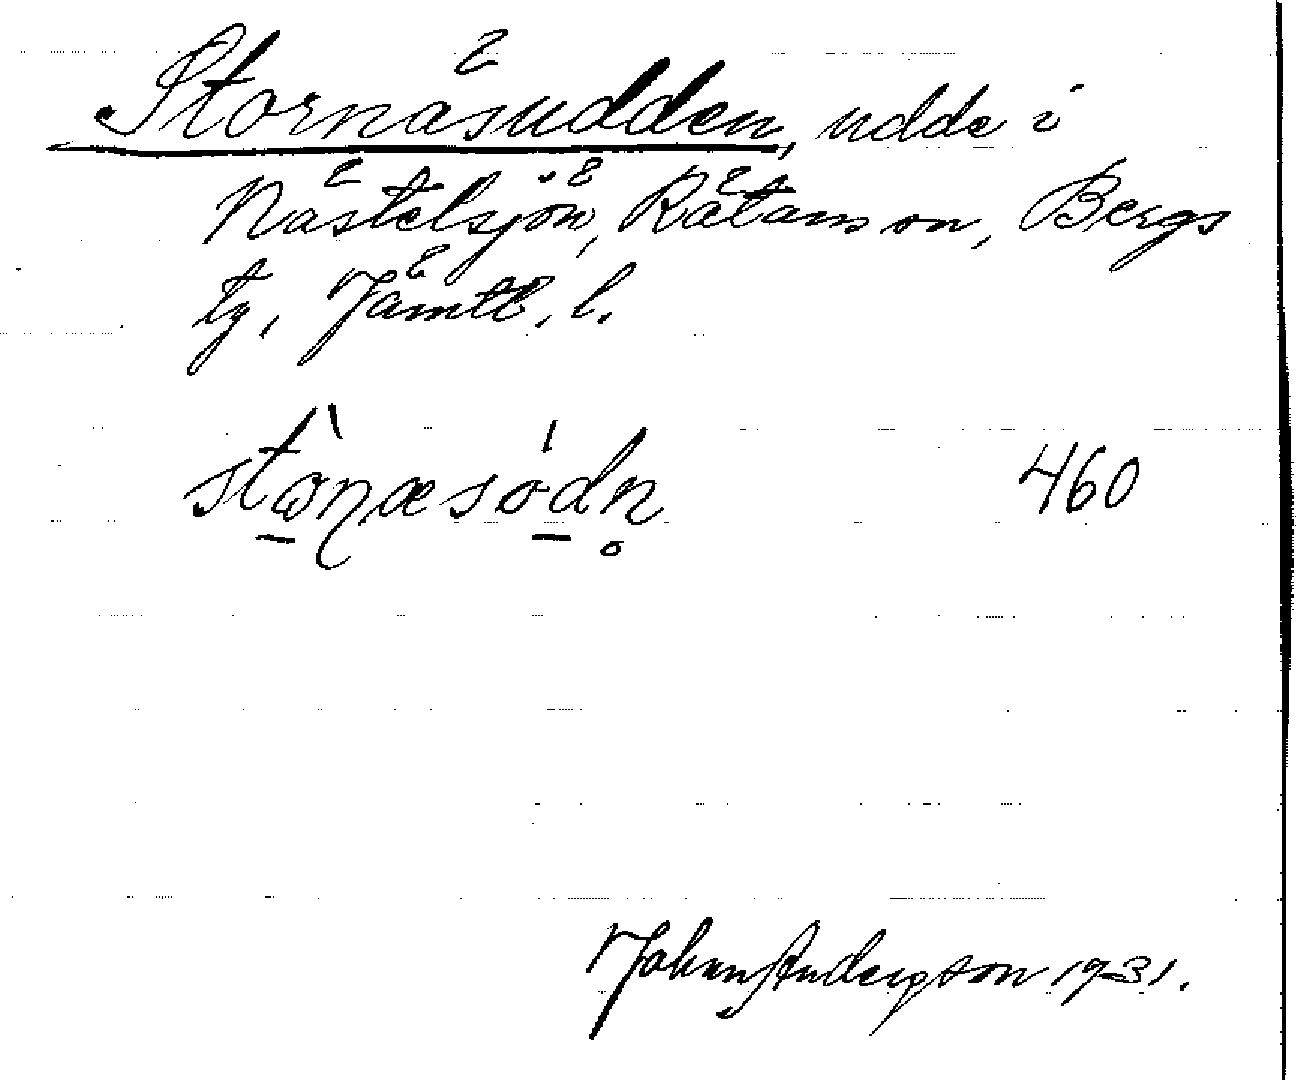 Stornäsudden, udde i
Nästelsjön, Rätans sn, Bergs
tg, Jämtl. l.
stònæsódn̥ 460
Johan Anderson 1931.